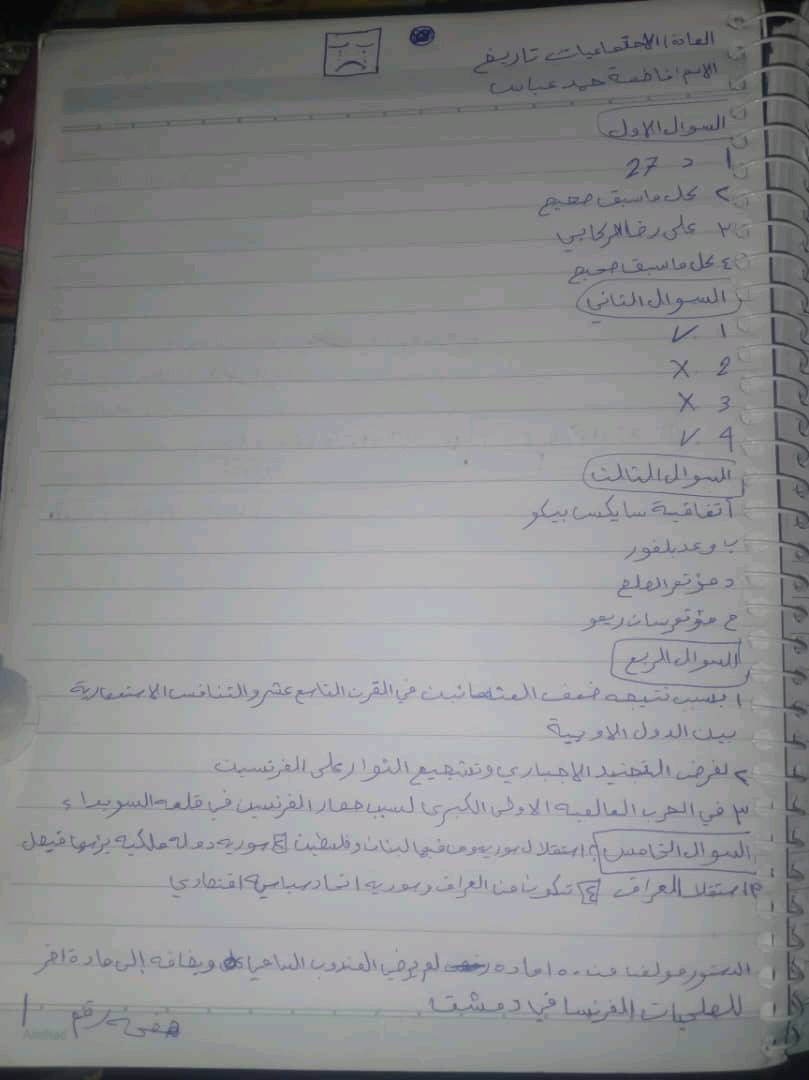 المادة/ الاجتماعيات تاريخ
الاسم/ فاطمة حمد عباس
السوال الاول
1 د 27
2 كل ماسبق صحيح
٣ علي رضا الركابي
٤ كل ماسبق صحيح
السوال الثاني
1 ✓
2 X
3 X
4 ✓
السوال الثالث
أ تفاقية سايكس بيكو
ب وعد بلفور
د مؤتمر الصلح
ج مؤتمر سان ريمو
السوال الربع
1 بسبب نتيجه ضعف العثمانين في القرن التاسع عشر والتنافس الاستعمارية
بين الدول الاوربية
2 لفرض التجنيد الاجباري وتشجيع الثوار على الفرنسين
٣ في الحرب العالمية الاولى الكبرى لسبب حصار الفرنسين في قلعه السويداء
السوال الخامس استقلال سوريه ومافيها لبنان وفلسطين سوريه دوله ملكيه يرئسها فيصل
٣ استقلال العراق تكون من العراق وسوريه اتحاد سياسي اقتصادي
الدستور مولف من مادة لم يرضي المندوب السامي ويضافه إلى مادة اخر
للصلحيات الفرنسا في دمشق
صفحه رقم 1